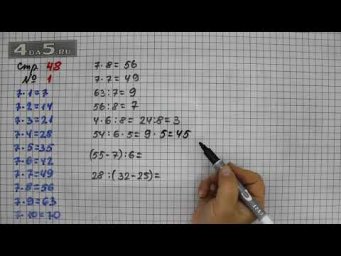 4DA5.RU
стр. 48
№ 1
7·1=7
7·2=14
7·3=21
7·4=28
7·5=35
7·6=42
7·7=49
7·8=56
7·9=63
7·10=70
7·8=56
7·7=49
63:7=9
56:8=7
4·6:8=24:8=3
54:6·5=9·5=45
(55-7):6=
28:(32-25)=